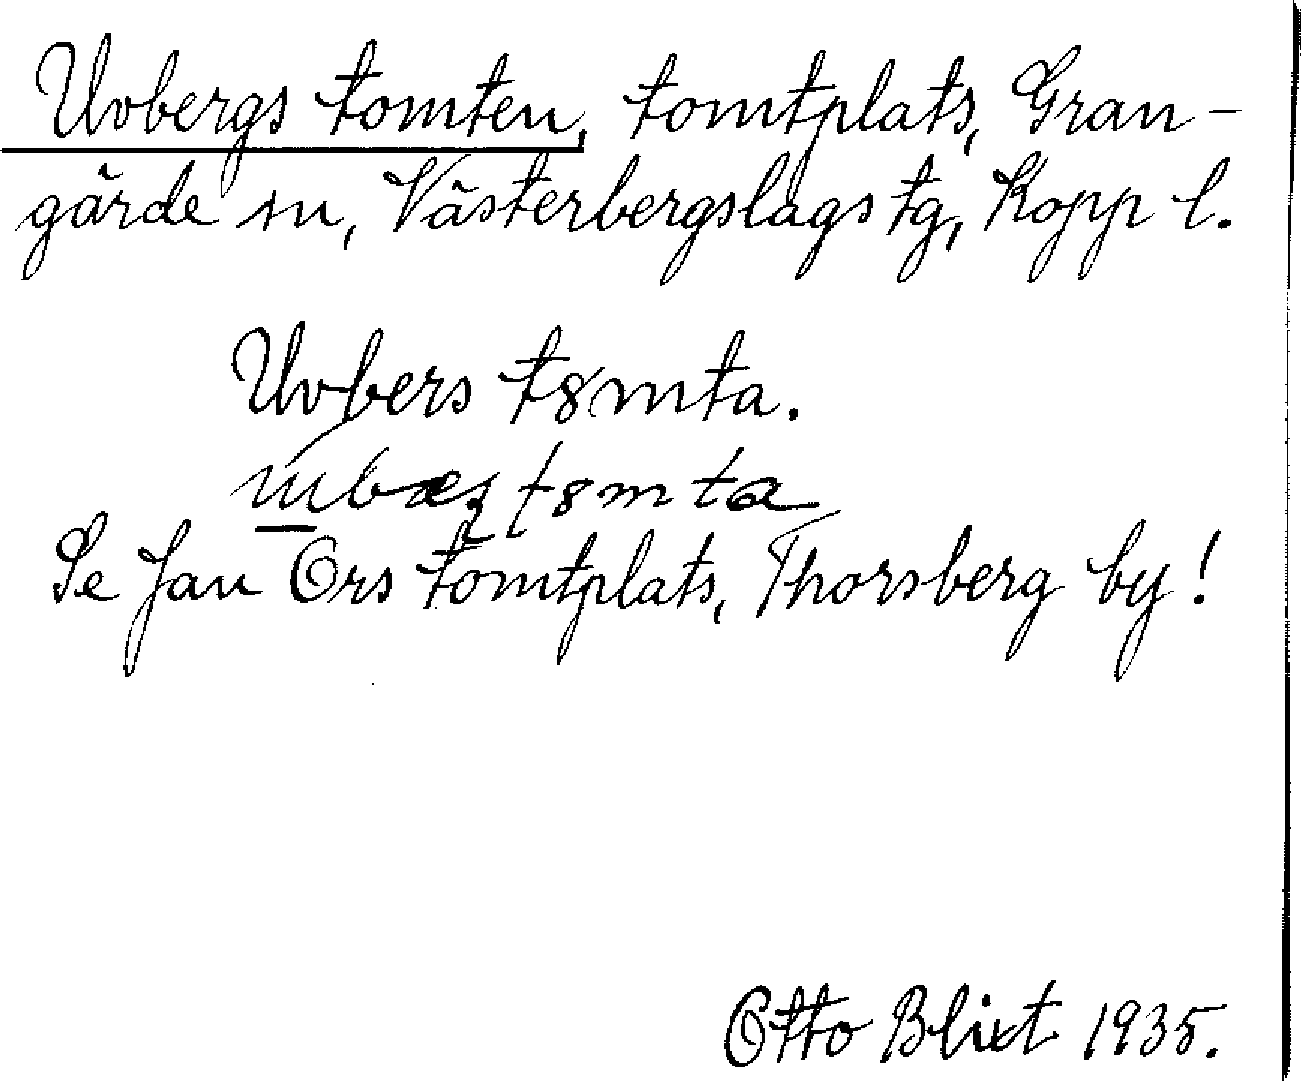 Uvbergs tomten, tomtplats, Gran-
gärde sn, Västerbergslags tg, Kopp l.
Uvbers t8mta.
t8mta
Se Jan Ors tomtplats, Thorsberg by!
Otto Blixt 1935.